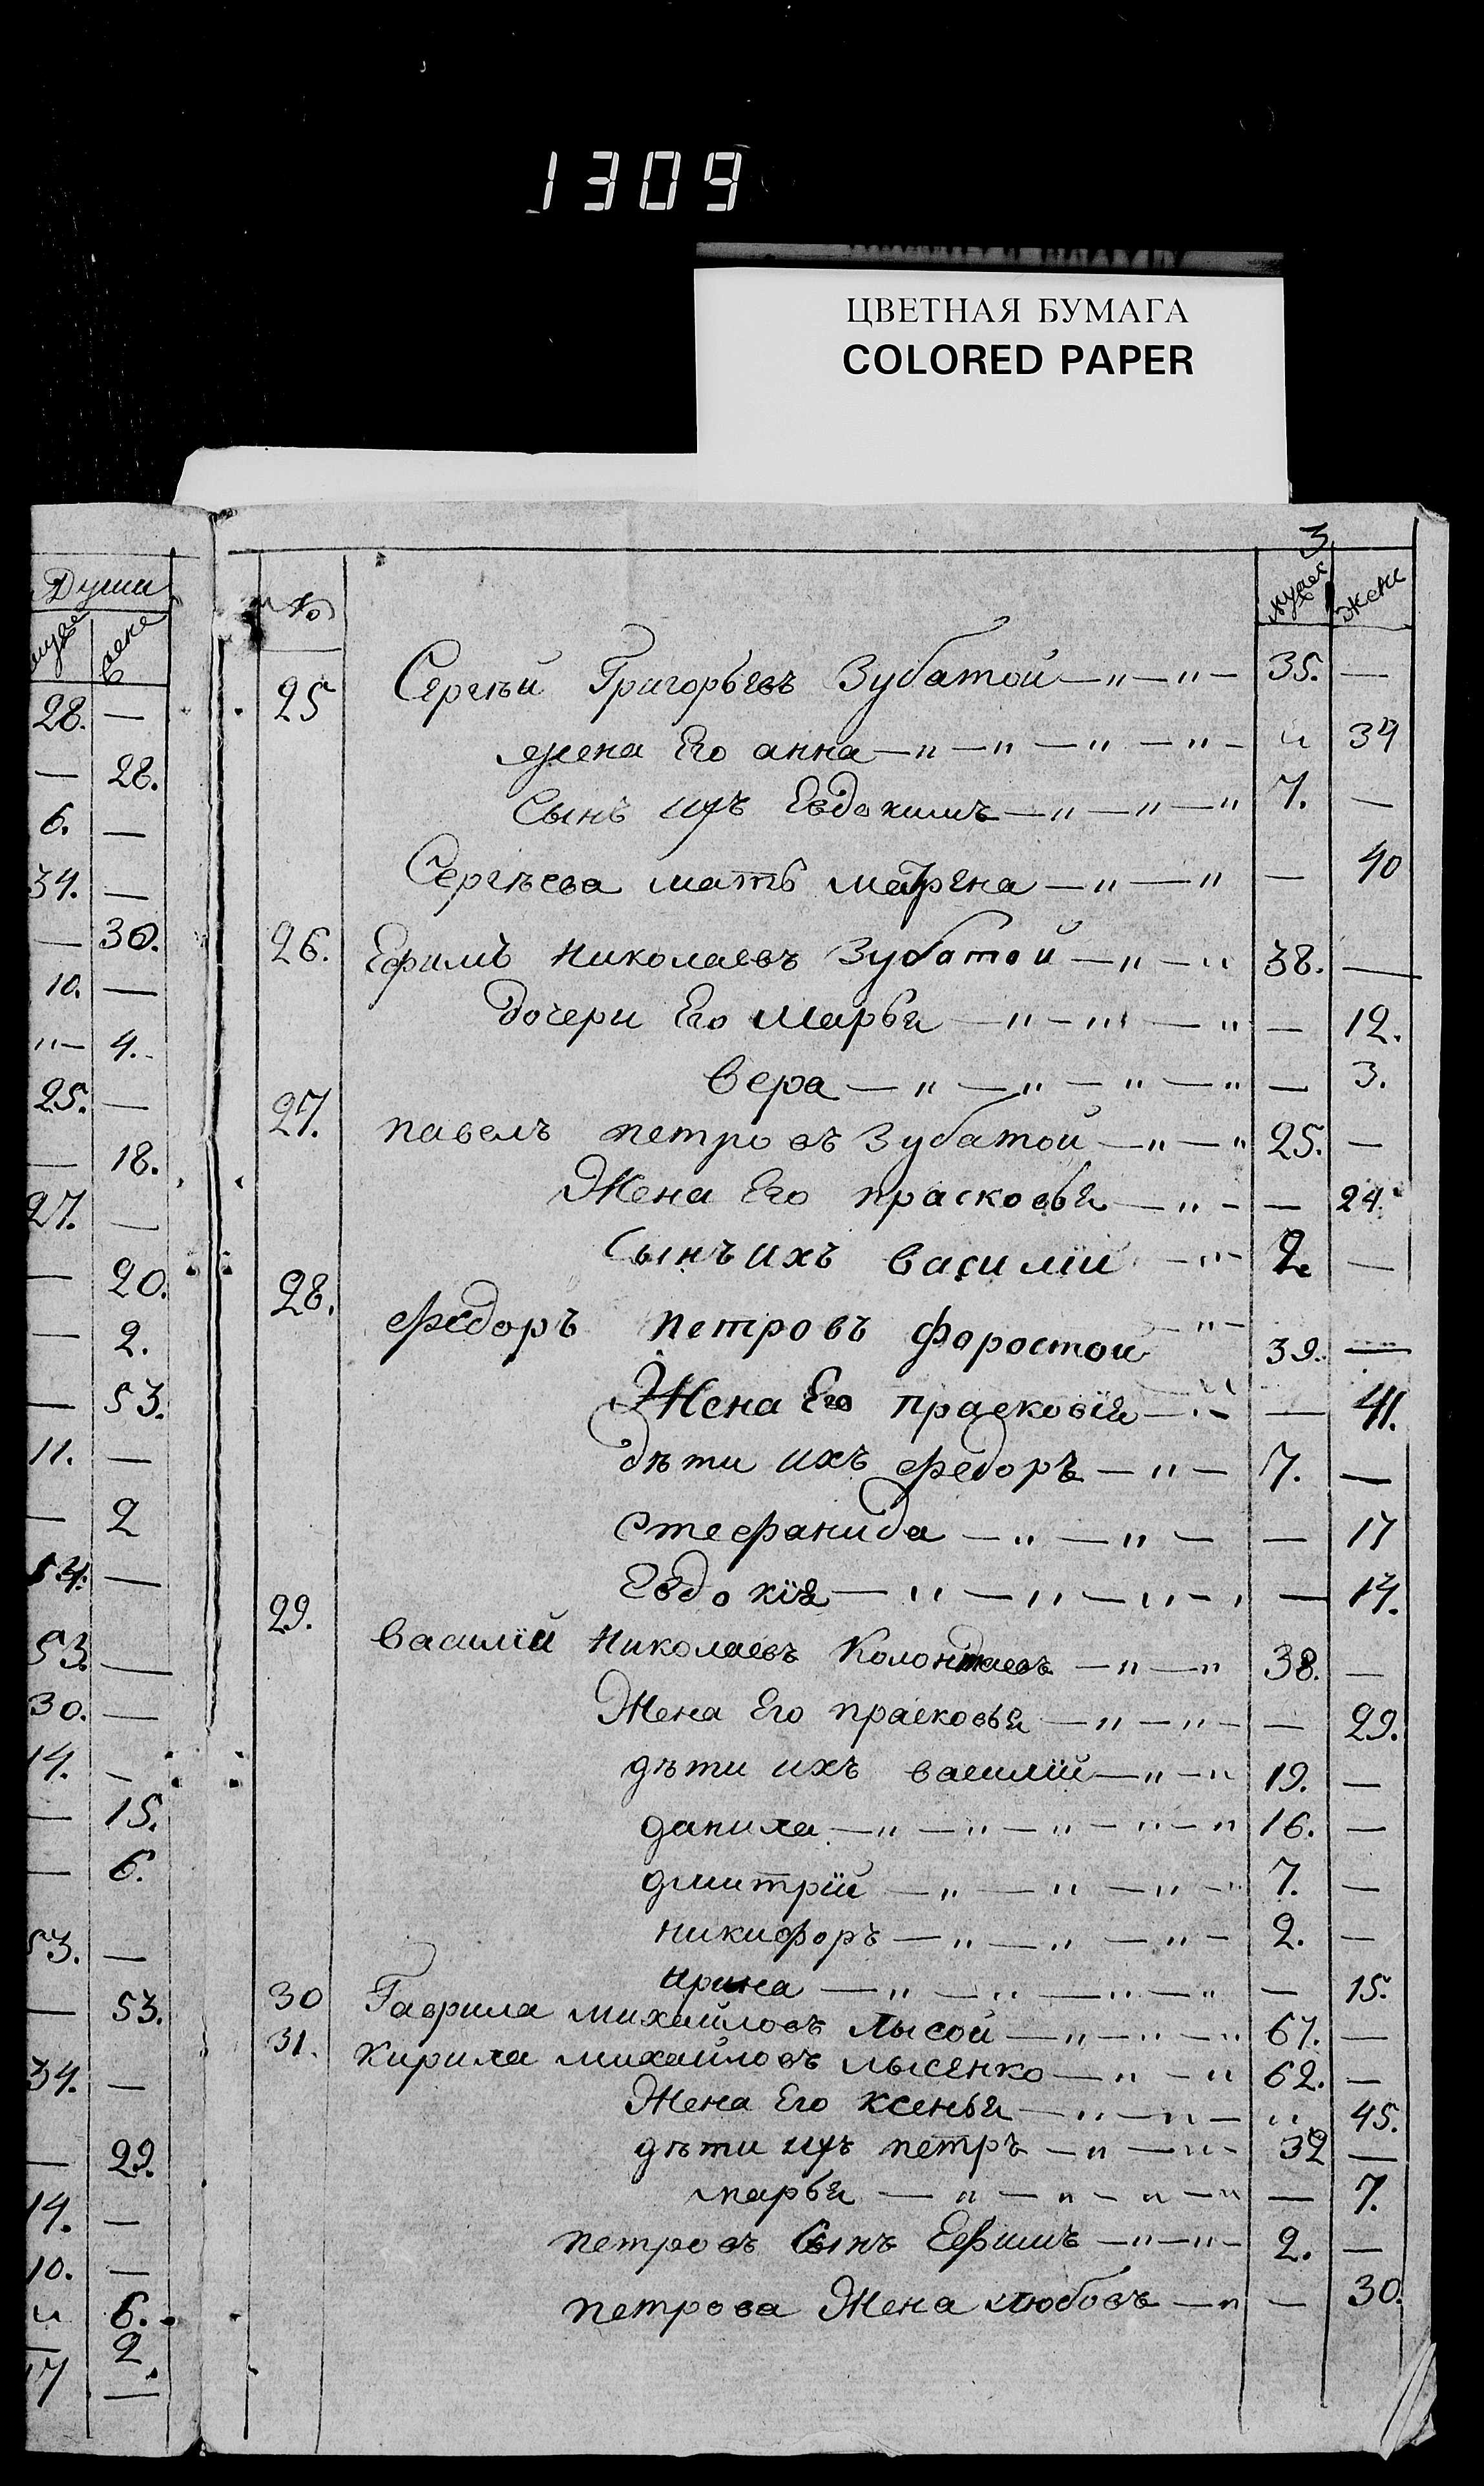 1309
ЦВЕТНАЯ БУМАГА
COLORED PAPER
3
Души
муже жене
28. —
— 28.
6. —
34. —
— 30.
10. —
"— 4.
25. —
— 18.
27. —
— 20.
— 2.
— 53.
11. —
— 2
54. —
53. —
30. —
14. —
— 15.
— 6.
53. —
— 53.
34. —
— 29.
14. —
10. —
" 6.
— 2.
17 —
№ мужес жене
25 Сергѣй Григорьевъ Зубатой — " — " — 35. —
жена Его анна — " — " — " — " — " 39
Сынъ ихъ Евдокимъ — " — " — " 7. —
Сергѣева мать матрена — " — " — 40
26. Ефимъ Николаевъ Зубатой — " — " 38. —
дочери Его Марья — " — " — " — 12.
вера — " — " — " — " — 3.
27. павелъ петровъ Зубатой — " — " 25. —
Жена Его прасковья — " — — 24.
Сынъ ихъ василій — " — 2. —
28. Федоръ петровъ Форостой — " — 39. —
Жена Его прасковія — " — — 41.
дѣти ихъ федоръ — " — 7. —
стефанида — " — " — — 17
Евдокія — " — " — " — " — 14.
29. василій Николаевъ — " — " 38. —
Жена Его прасковья — " — " — — 29.
дѣти ихъ василій — " — " 19. —
данила — " — " — " — " — " 16. —
дмитрій — " — " — " — " 7. —
никифоръ — " — " — " — 2. —
ирина — " — " — " — " — 15.
30 Гаврила михайловъ лысой — " — " — " 67. —
31. Кирила михайловъ лысенко — " — " 62. —
Жена Его ксенья — " — " — " 45.
дѣти ихъ петръ — " — " — 32 —
марья — " — " — " — " — 7.
петровъ сынъ Ефимъ — " — " — 2. —
петрова Жена любовъ — " — 30.